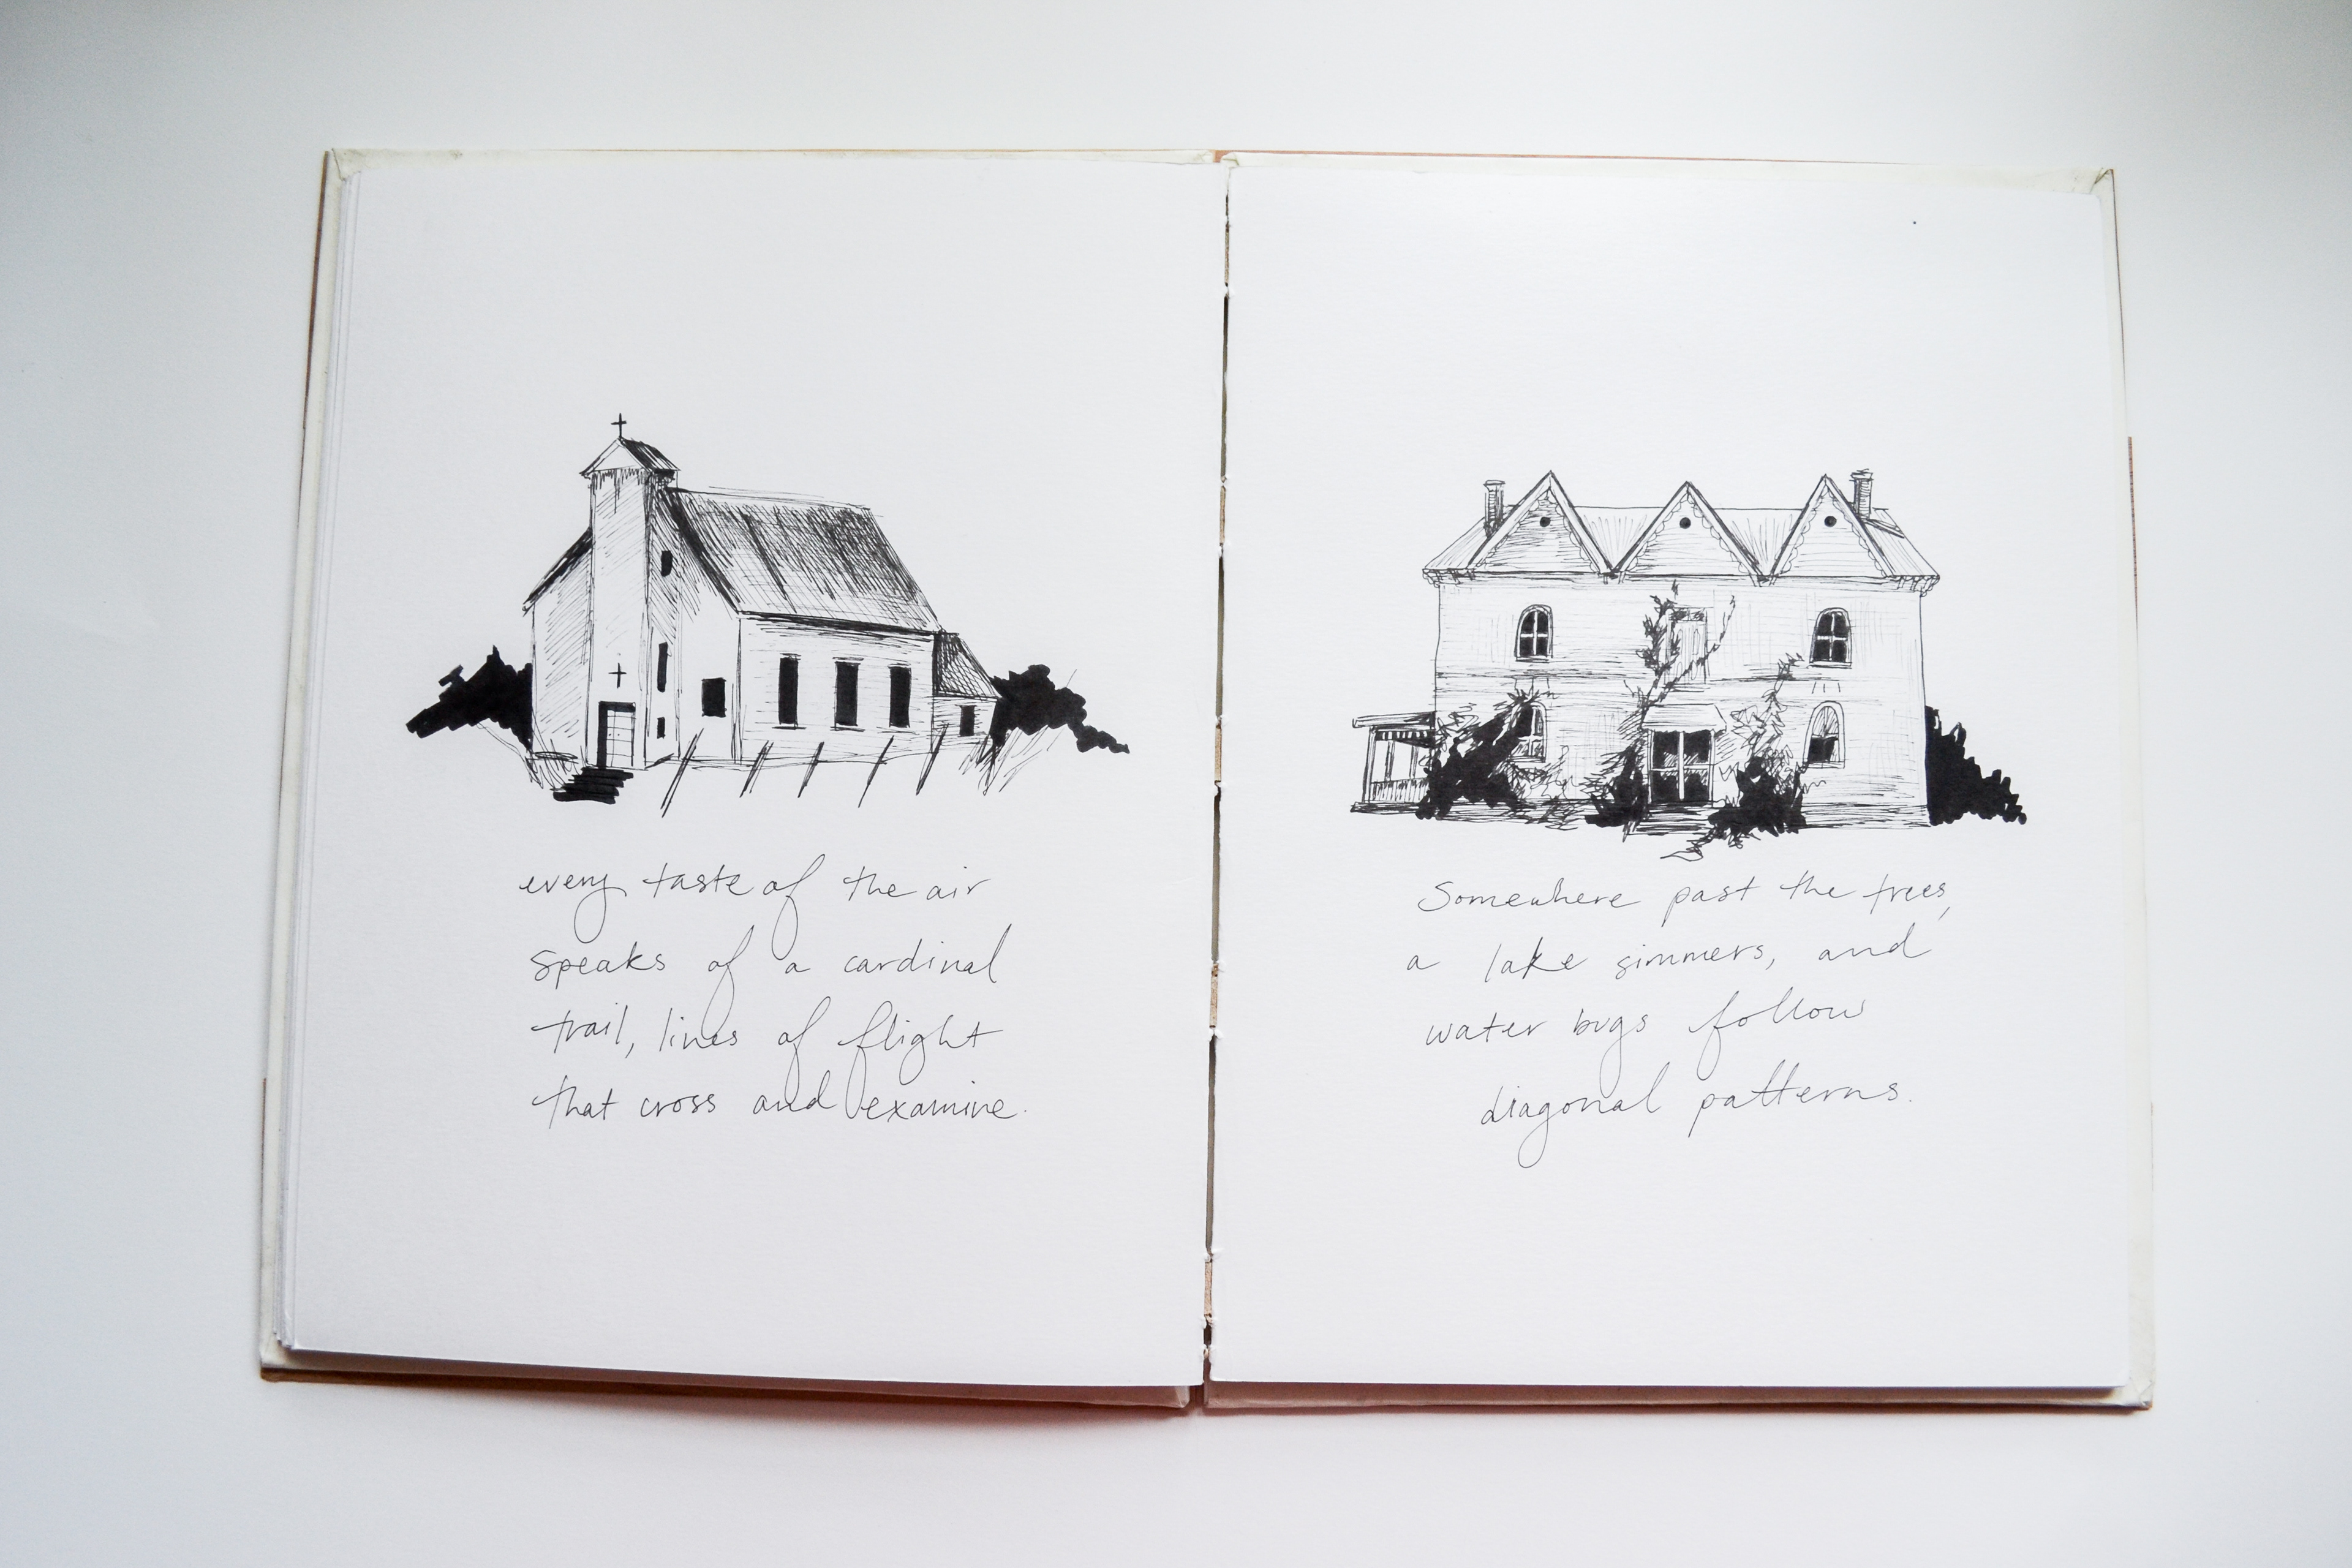 every taste of the air
speaks of a cardinal
trail, lines of flight
that cross and examine.
Somewhere past the trees,
a lake simmers, and
water bugs follow
diagonal patterns.